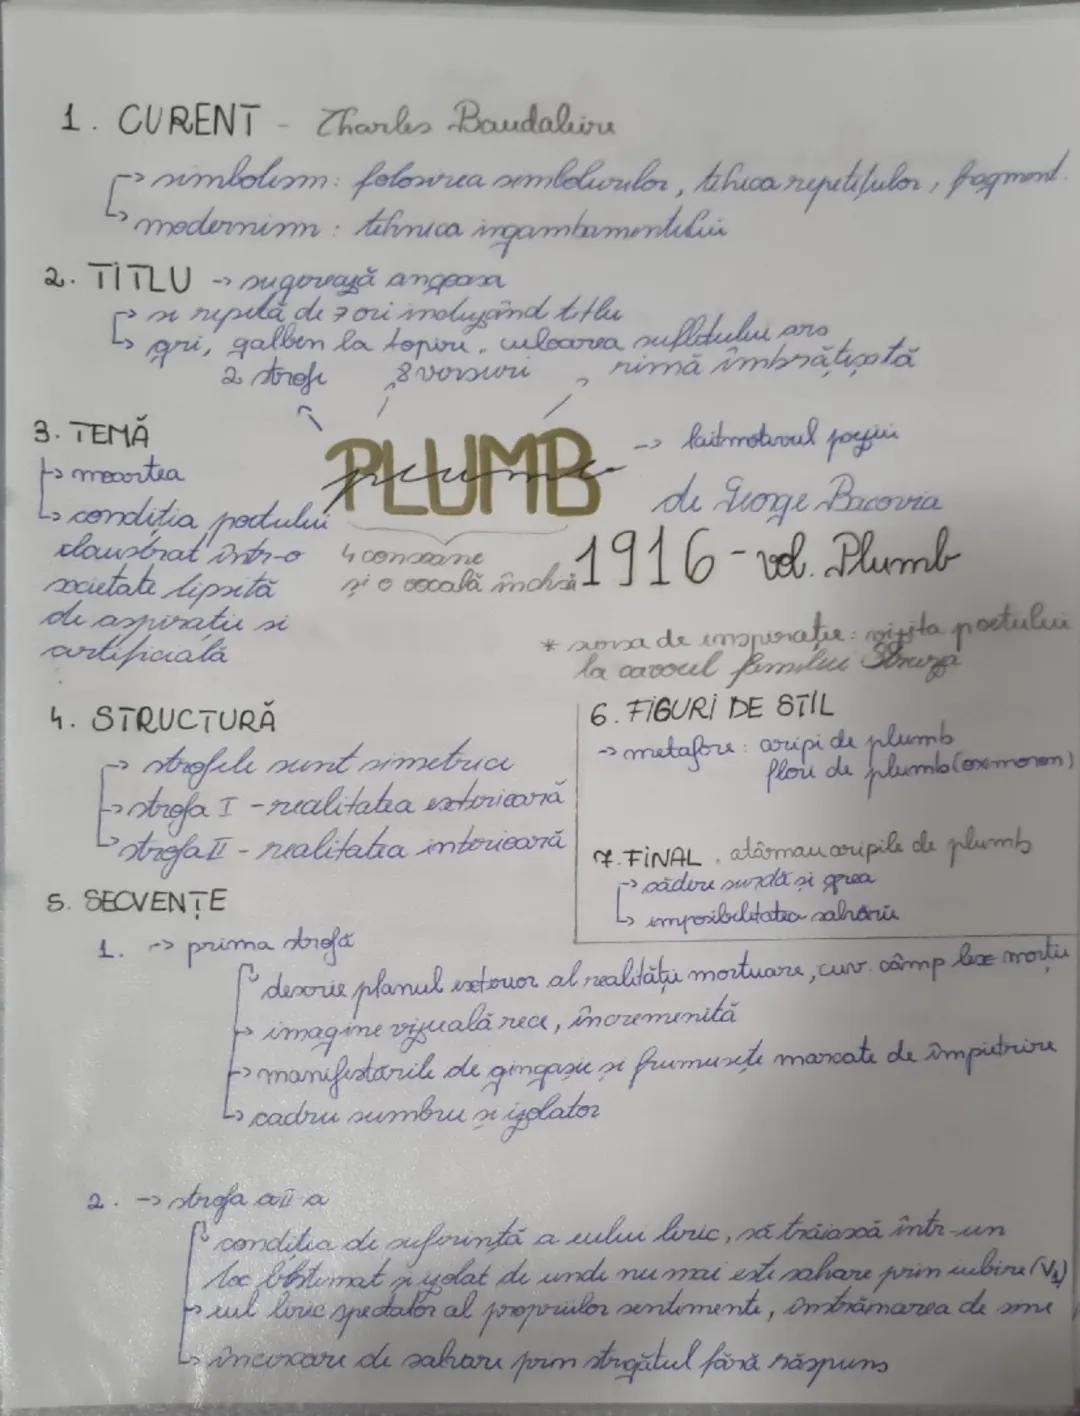 1. CURENT - Charles Baudaleire
→ simbolism: folosirea simbolurilor, tehnica repetițiilor, fragment.
→ modernism: tehnica ingambamentului
2. TITLU → sugerează angoasa
→ se repetă de 7 ori incluzând titlu
→ gri, galben la topire, culoarea sufletului ars
2 strofe 8 versuri rimă îmbrățișată
3. TEMĂ
→ moartea
→ condiția poetului
claustrat într-o
societate lipsită
de aspirație si
artificială
PLUMB
plumb
→ laitmotivul poeziei
de George Bacovia
4 consoane
și o vocală închisă
1916 - vol. Plumb
* sursa de inspirație: vizita poetului
la cavoul familiei Sturza
4. STRUCTURĂ
→ strofele sunt simetrice
→ strofa I - realitatea exterioară
→ strofa II - realitatea interioară
6. FIGURI DE STIL
→ metafore: aripi de plumb
flori de plumb (oximoron)
7. FINAL . atârnau aripile de plumb
→ cădere surdă și grea
→ imposibilitatea salvării
5. SECVENȚE
1. → prima strofă
→ descrie planul exterior al realității mortuare, cuv. câmp lex morții
→ imagine vizuală rece, încremenită
→ manifestările de gingașie și frumusețe marcate de împietrire
→ cadru sumbru și izolator
2. → strofa a II a
→ condiția de suferință a eului liric, să trăiască într-un
loc blestemat și izolat de unde nu mai este salvare prin iubire (V1)
→ eul liric spectator al propriilor sentimente, înstrăinarea de sine
→ încercare de salvare prin strigătul fără răspuns